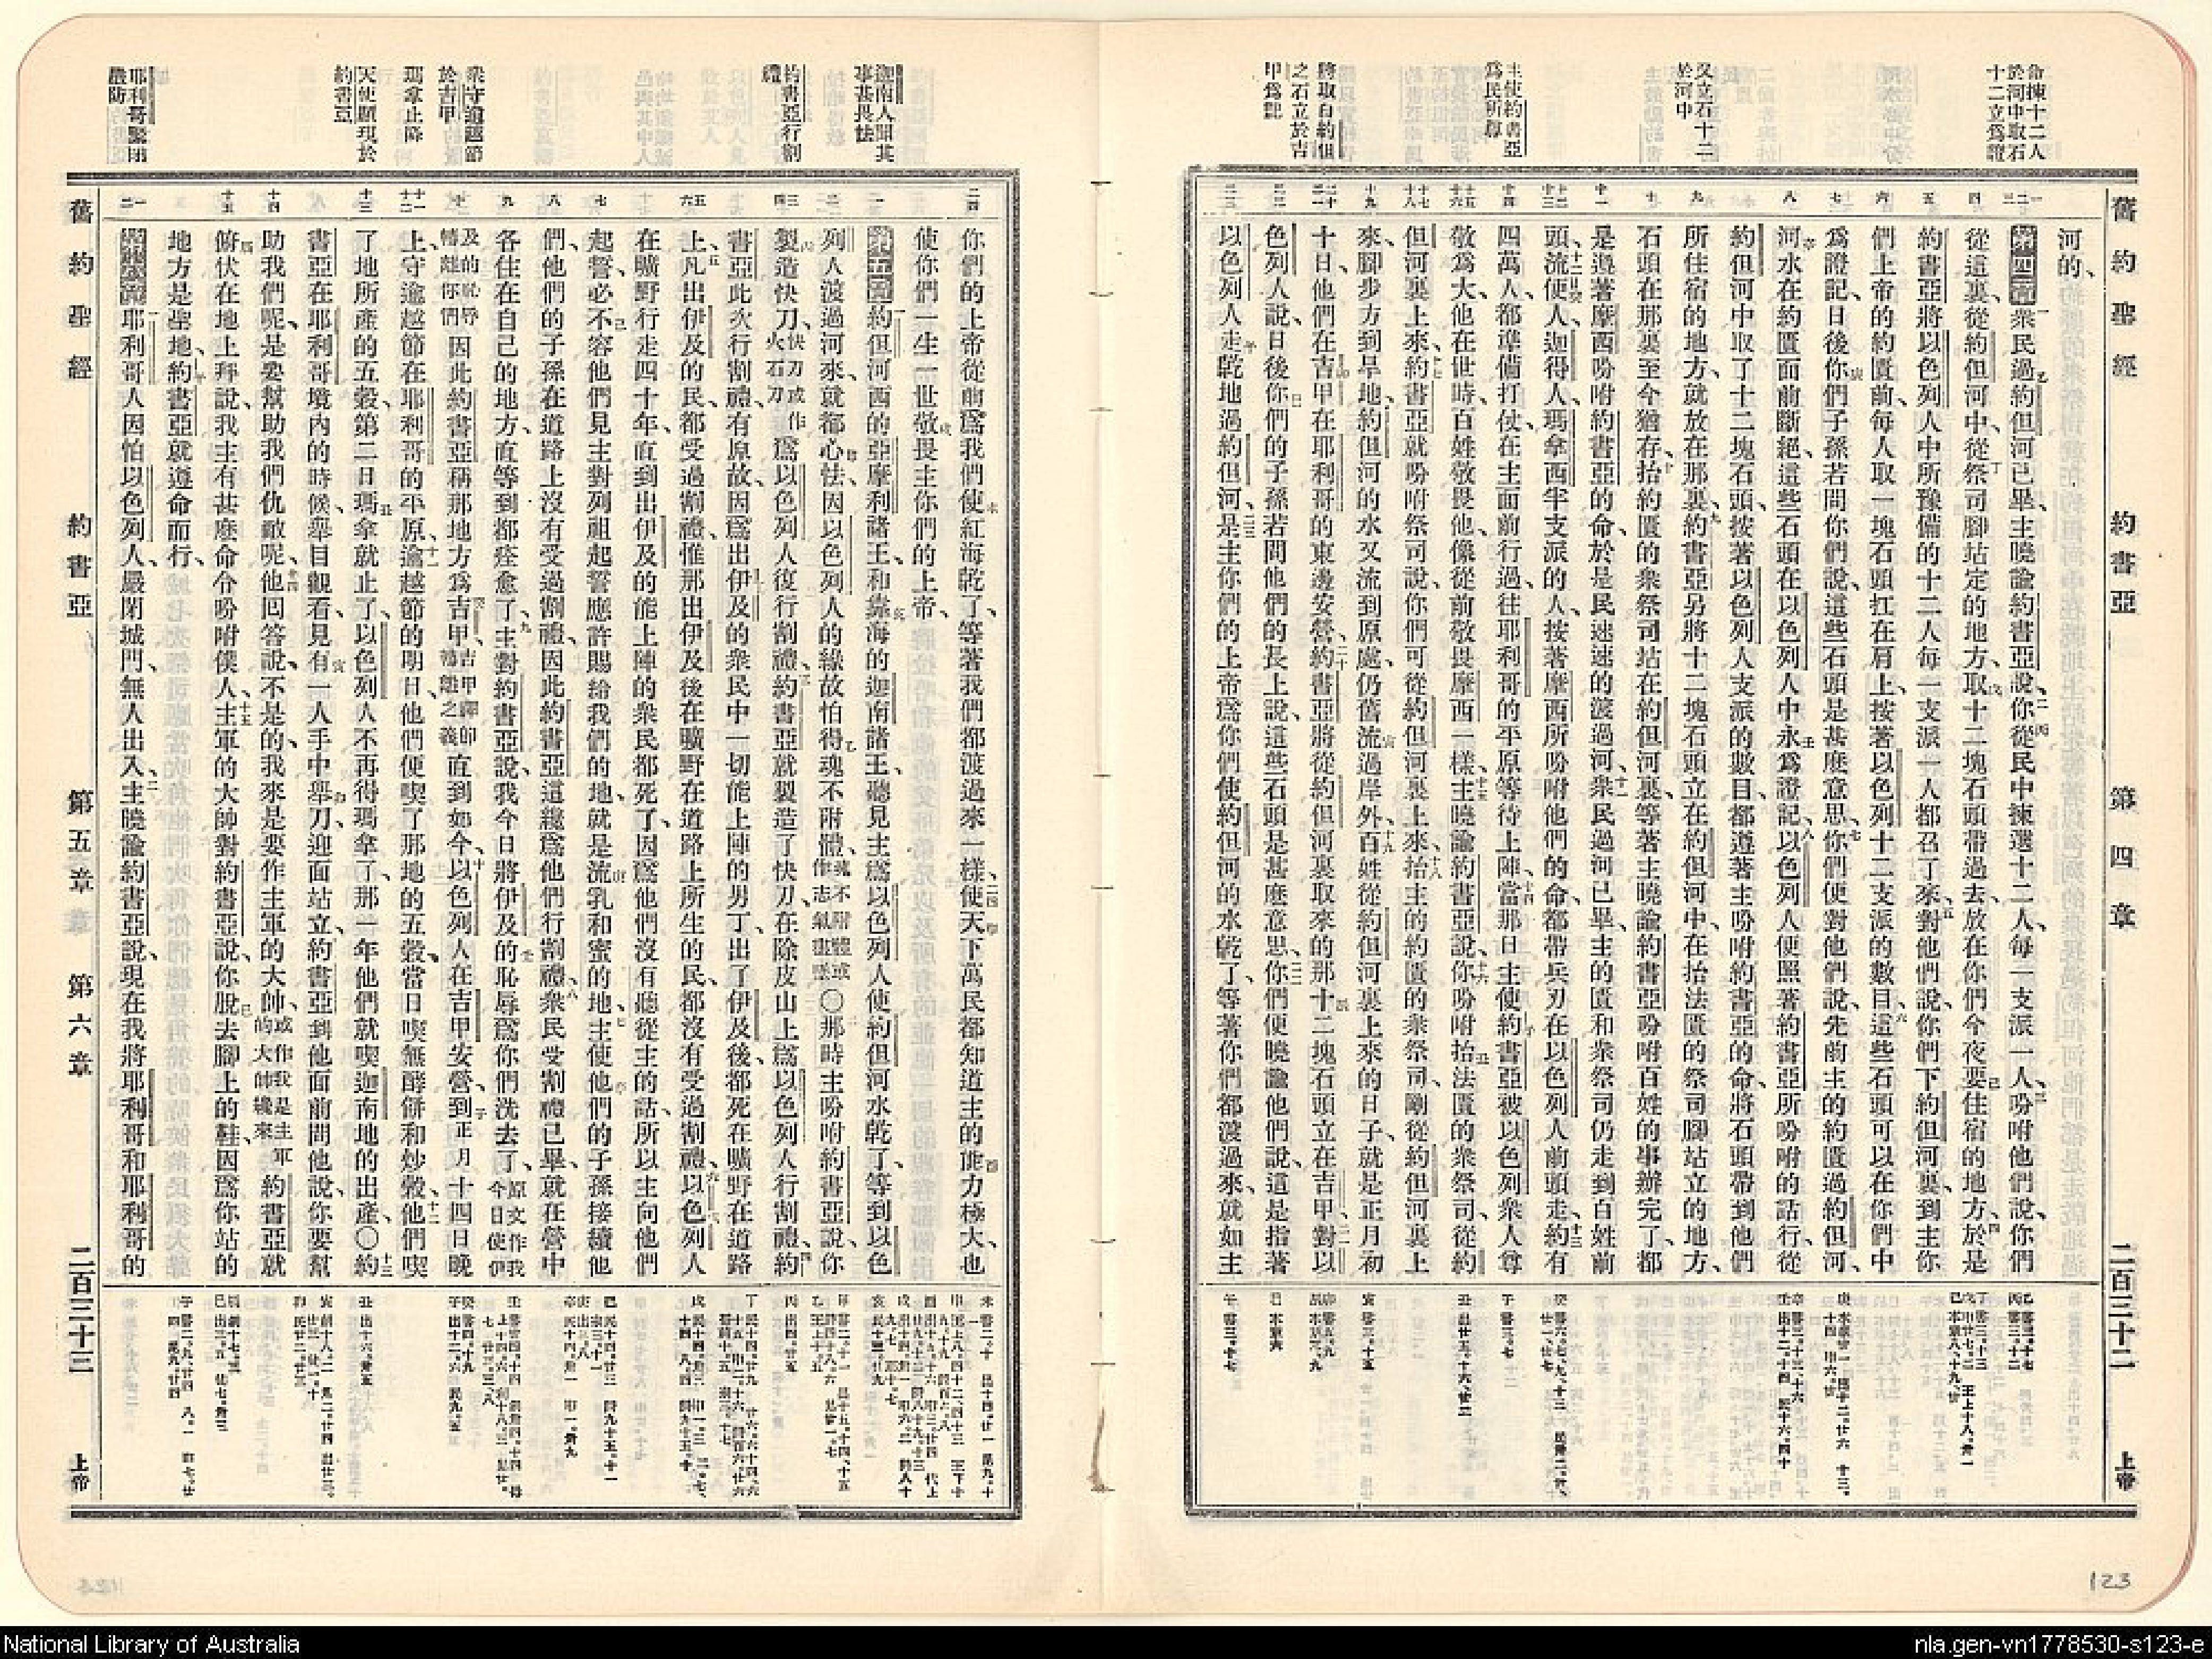 命揀十二人
於河中取石
十二立爲證
又立石十二
於河中
主使約書亞
爲民所尊
將取自約但
之石立於吉
甲爲記
舊約聖經 約書亞 第四章 二百三十二 上帝
河的、
第四章 衆民過約但河已畢、主曉諭約書亞說、你從民中揀選十二人、每一支派一人、吩咐他們說、你們
從這裏、從約但河中、從祭司腳站定的地方、取十二塊石頭帶過去、放在你們今夜要住宿的地方、於是
約書亞將以色列人中所豫備的十二人、每一支派一人、都召了來、對他們說、你們下約但河裏、到主你
們上帝的約匱前、每人取一塊石頭扛在肩上、按著以色列十二支派的數目、這些石頭可以在你們中
爲證記、日後你們子孫若問你們說、這些石頭是甚麼意思、你們便對他們說、先前主的約匱過約但河、
河水在約匱面前斷絕、這些石頭在以色列人中永爲證記、以色列人便照著約書亞所吩咐的話行、從
約但河中取了十二塊石頭、按著以色列人支派的數目、都遵著主吩咐約書亞的命、將石頭帶到他們
所住宿的地方、就放在那裏、約書亞另將十二塊石頭立在約但河中、在抬法匱的祭司腳站立的地方、
石頭在那裏至今猶存、抬約匱的衆祭司站在約但河裏、等著主曉諭約書亞吩咐百姓的事辦完了、都
是遵著摩西吩咐約書亞的命、於是民速速的渡過河、衆民過河已畢、主的匱和衆祭司仍走到百姓前
頭、流便人、迦得人、瑪拿西半支派的人、按著摩西所吩咐他們的命、都帶兵刃在以色列人前頭走、約有
四萬人、都準備打仗、在主面前行過、往耶利哥的平原等待上陣、當那日主使約書亞被以色列衆人尊
敬爲大、他在世時、百姓敬畏他、像從前敬畏摩西一樣、主曉諭約書亞說、你吩咐抬法匱的衆祭司、從約
但河裏上來、約書亞就吩咐祭司說、你們可從約但河裏上來、抬主的約匱的衆祭司、剛從約但河裏上
來、腳步方到旱地、約但河的水又流到原處、仍舊流過岸外、百姓從約但河裏上來的日子、就是正月初
十日、他們在吉甲、在耶利哥的東邊安營、約書亞將從約但河裏取來的那十二塊石頭立在吉甲、對以
色列人說、日後你們的子孫若問他們的長上說、這些石頭是甚麼意思、你們便曉諭他們說、這是指著
以色列人走乾地過約但河、是主你們的上帝爲你們使約但河的水乾了、等著你們都渡過來、就如主
123
迦南人聞其
事甚畏怯
約書亞行割
禮
衆守逾越節
於吉甲
瑪拿止降
天使顯現於
約書亞
耶利哥緊閉
嚴防
你們的上帝從前爲我們使紅海乾了、等著我們都渡過來一樣、使天下萬民都知道主的能力極大、也
使你們一生一世敬畏主你們的上帝、
第五章 約但河西的亞摩利諸王、和靠海的迦南諸王、聽見主爲以色列人使約但河水乾了、等到以色
列人渡過河來、就都心怯、因以色列人的緣故、怕得魂不附體、魂不附體或作志氣盡墜〇那時主吩咐約書亞說、你
製造快刀、快刀或作火石刀爲以色列人復行割禮、約書亞就製造了快刀、在除皮山上爲以色列人行割禮、約
書亞此次行割禮有原故、因爲出伊及的衆民中、一切能上陣的男丁、出了伊及後、都死在曠野在道路
上、凡出伊及的民、都受過割禮、惟那出伊及後、在曠野在道路上所生的民、都沒有受過割禮、以色列人
在曠野行走四十年、直到出伊及的能上陣的衆民都死了、因爲他們沒有聽從主的話、所以主向他們
起誓、必不容他們見主對列祖起誓應許賜給我們的地、就是流乳和蜜的地、主使他們的子孫接續他
們、他們的子孫在道路上沒有受過割禮、因此約書亞這纔爲他們行割禮、衆民受割禮已畢、就在營中
各住在自己的地方、直等到都痊愈了、主對約書亞說、我今日將伊及的恥辱爲你們洗去了、原文作我今日使伊
及的恥辱轉離你們因此約書亞稱那地方爲吉甲、吉甲譯卽轉離之義直到如今、以色列人在吉甲安營、到正月十四日晚
上、守逾越節在耶利哥的平原、逾越節的明日、他們便喫了那地的五穀、當日喫無酵餅和炒穀、他們喫
了地所產的五穀、第二日瑪拿就止了、以色列人不再得瑪拿了、那一年他們就喫迦南地的出產、〇約
書亞在耶利哥境內的時候、舉目觀看、見有一人手中舉刀、迎面站立、約書亞到他面前問他說、你要幫
助我們呢、是要幫助我們仇敵呢、他回答說、不是的、我來是要作主軍的大帥、或作我是主軍的大帥纔來約書亞就
俯伏在地上拜說、我主有甚麼命令吩咐僕人、主軍的大帥對約書亞說、你脫去腳上的鞋、因爲你站的
地方是聖地、約書亞就遵命而行、
第六章 耶利哥人因怕以色列人、嚴閉城門、無人出入、主曉諭約書亞說、現在我將耶利哥和耶利哥的
舊約聖經 約書亞 第五章 第六章 二百三十三 上帝
National Library of Australia
nla.gen-vn1778530-s123-e